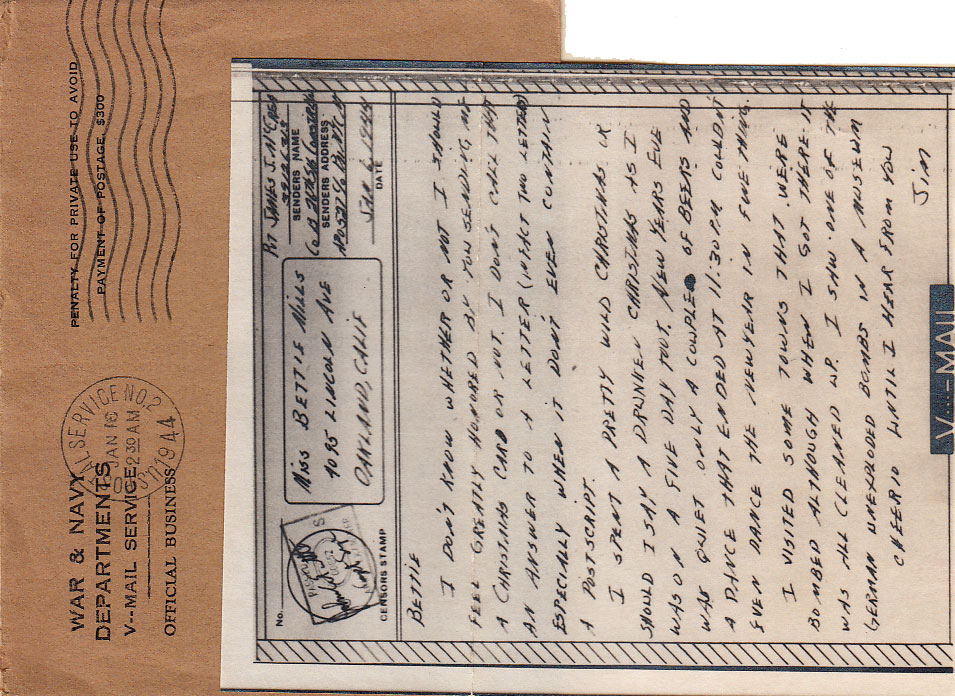 WAR & NAVY
DEPARTMENTS
V--MAIL SERVICE
OFFICIAL BUSINESS
PENALTY FOR PRIVATE USE TO AVOID
PAYMENT OF POSTAGE, $300
POSTAL SERVICE NO. 2
JAN 18
2 30 AM
1944
No.
CENSORS STAMP
MISS BETTIE MILLS
4095 LINCOLN AVE
OAKLAND, CALIF
PVT JAMES J.
SENDERS NAME
SENDERS ADDRESS
JAN 1, 1944
DATE
BETTIE
I DON'T KNOW WHETHER OR NOT I SHOULD
FEEL GREATLY HONORED BY YOU SENDING ME
A CHRISTMAS CARD OR NOT. I DON'T CALL THAT
AN ANSWER TO A LETTER (INFACT TWO LETTERS)
ESPECIALLY WHEN IT DON'T EVEN CONTAIN
A POSTSCRIPT.
I SPENT A PRETTY WILD CHRISTMAS OR
SHOULD I SAY A DRUNKEN CHRISTMAS AS I
WAS ON A FIVE DAY TOOT. NEW YEARS EVE
WAS QUIET ONLY A COUPLE OF BEERS AND
A DANCE THAT ENDED AT 11:30 PM COULDN'T
EVEN DANCE THE NEW YEAR IN FUNE THING.
I VISITED SOME TOWNS THAT WERE
BOMBED ALTHOUGH WHEN I GOT THERE IT
WAS ALL CLEANED UP. I SAW ONE OF THE
GERMAN UNEXPLODED BOMBS IN A MUSEUM
CHEERIO UNTIL I HEAR FROM YOU
JIM
V---MAIL